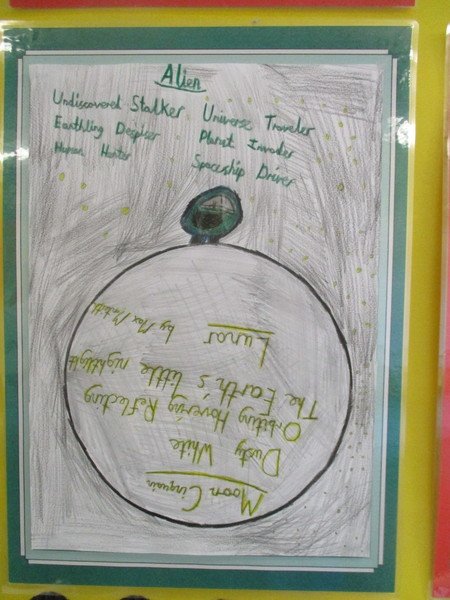 Alien
Undiscovered Stalker
Earthling Despiser
Human Hunter
Universe Traveler
Planet Invader
Spaceship Driver
Moon Cinquain
Dusty White
Orbiting Hovering Reflecting
The Earth's little nightlight
Lunar
by Max